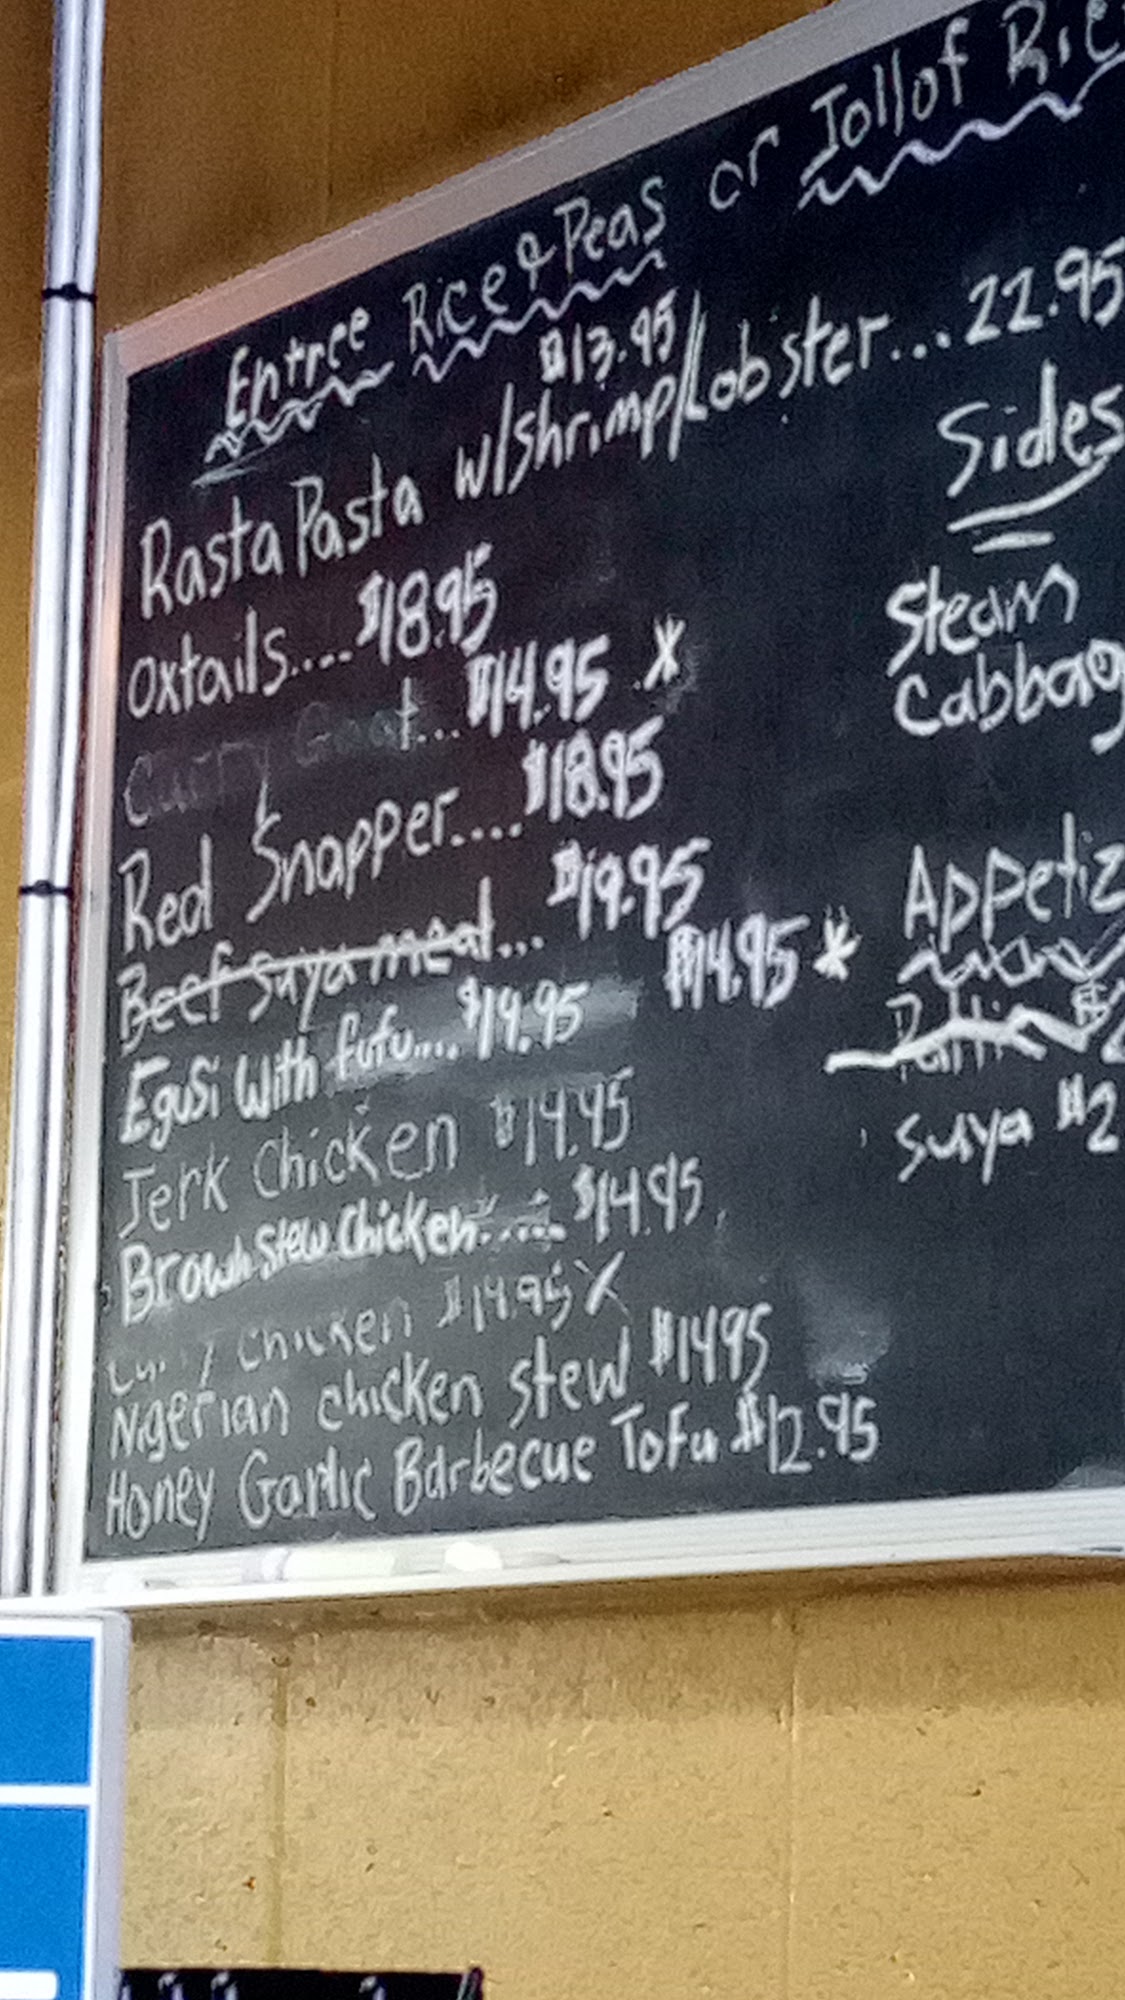 Entree Rice & Peas or Jollof Ric
$13.95
Rasta Pasta w/shrimp/Lobster...22.95
Oxtails....$18.95
Curry Goat...$14.95 X
Red Snapper....$18.95
Beef suya meat...$19.95
$14.95 *
Egusi With fufu....$19.95
Jerk Chicken $14.95
Brown stew chicken.....$14.95
Curry Chicken $14.95 X
Nigerian chicken stew $1495
Honey Garlic Barbecue Tofu $12.95
Sides
Steam
Cabbag
Appetiz
Suya $2